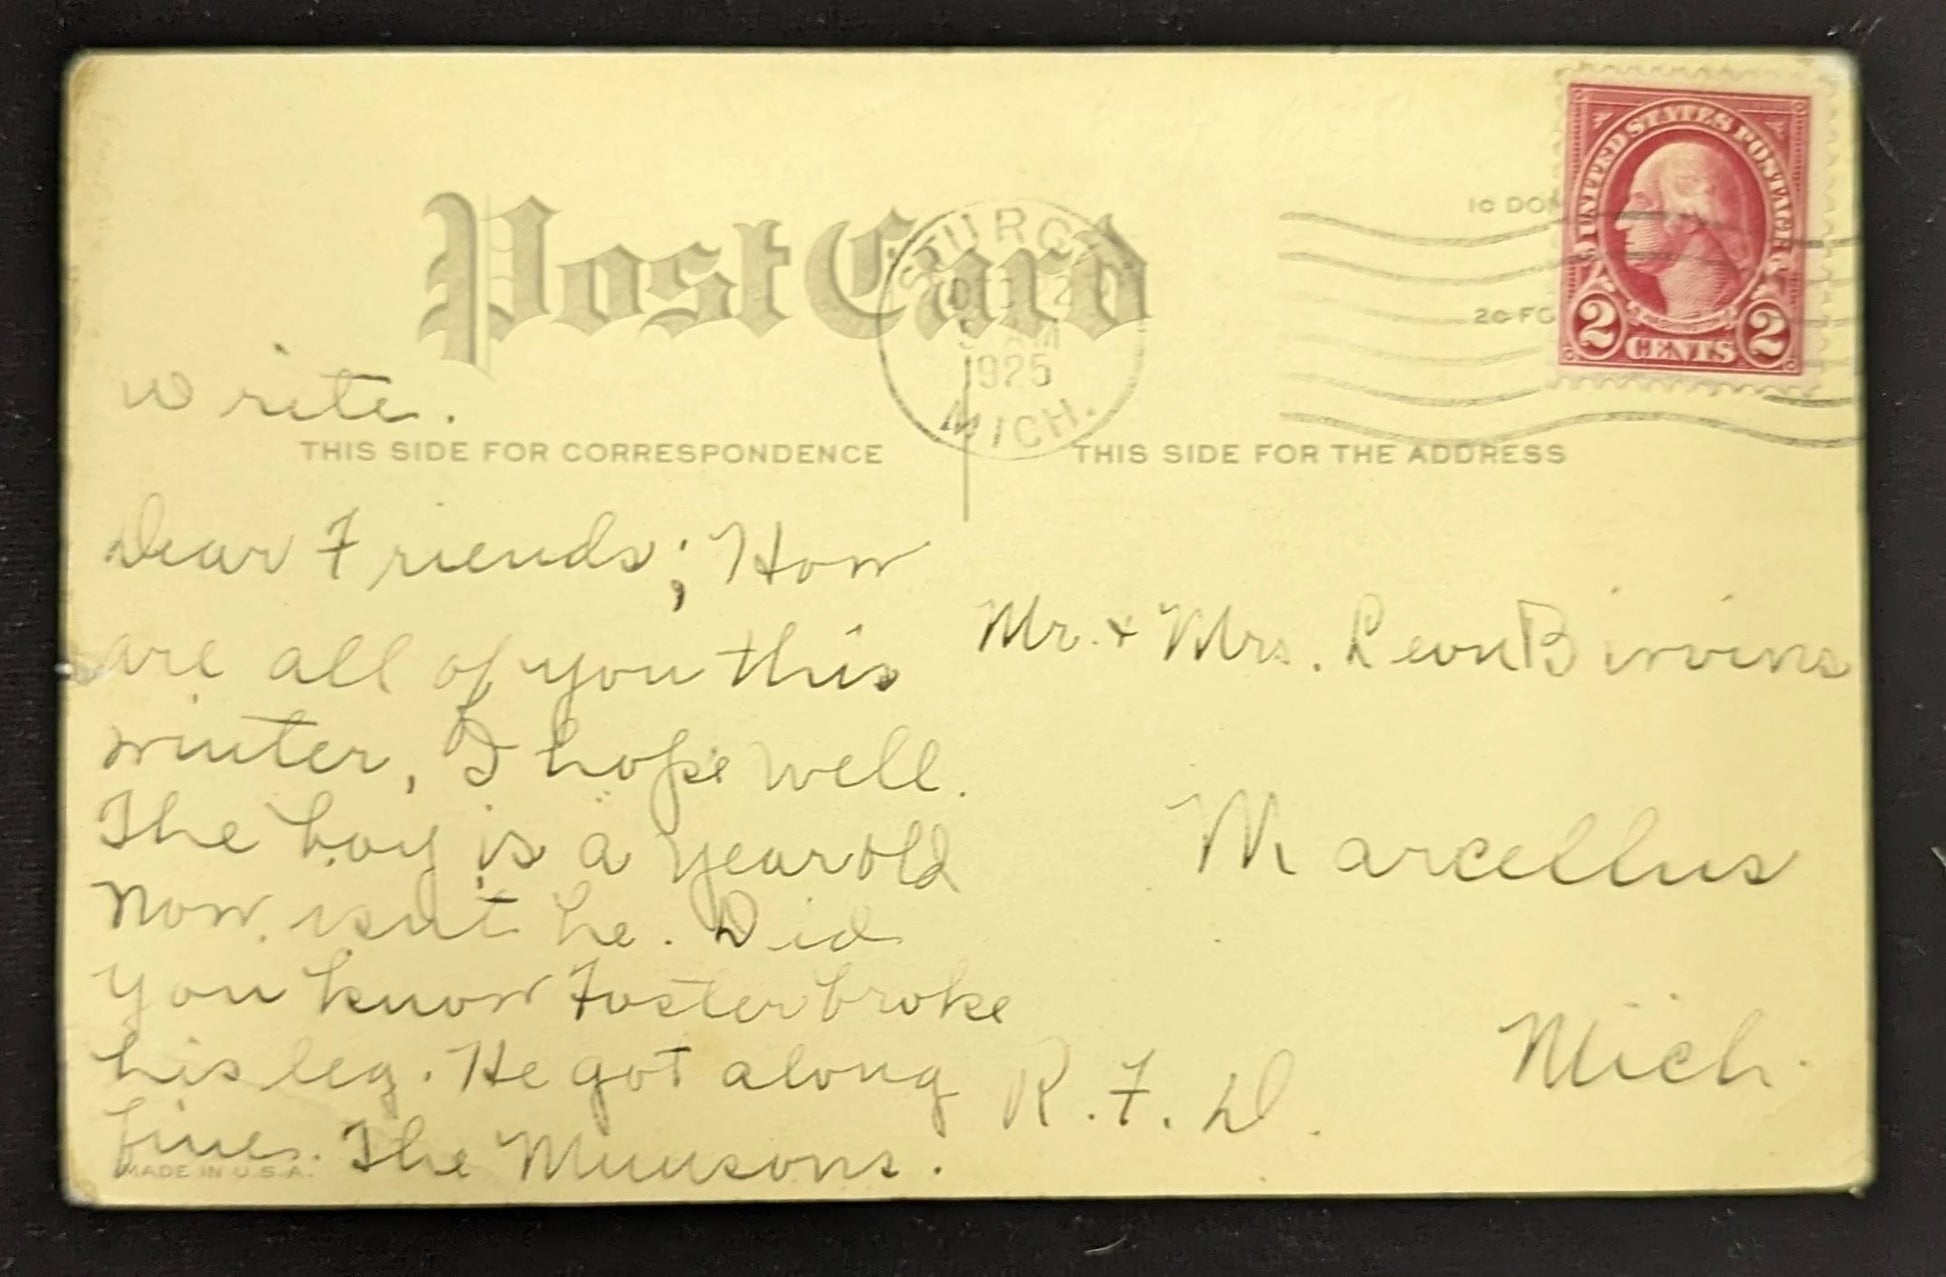 Post Card
STURGIS
DEC 2
AM
1925
MICH.
1c DO
2c FO
UNITED STATES POSTAGE
2 CENTS 2
write.
THIS SIDE FOR CORRESPONDENCE
THIS SIDE FOR THE ADDRESS
Dear Friends; How
are all of you this
winter, I hope well.
The boy is a year old
now, isn't he. Did
you know Foster broke
his leg. He got along
fine. The Munsons.
Mr. + Mrs. Leon Bivins
Marcellus
Mich.
R.F.D.
MADE IN U.S.A.